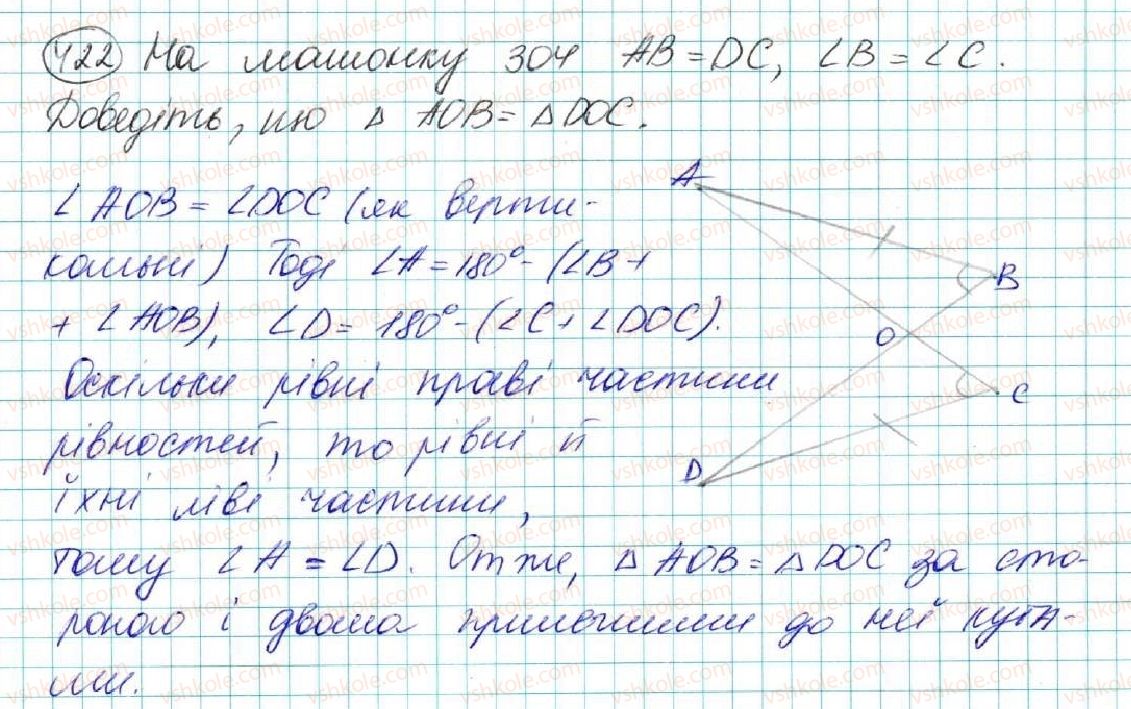 422 На малюнку 304 AB = DC, ∠B = ∠C.
Доведіть, що △ AOB = △ DOC.
∠ AOB = ∠DOC (як верти-
кальні) Тоді ∠A = 180° - (∠B +
+ ∠ AOB), ∠D = 180° - (∠C + ∠DOC).
Оскільки рівні праві частини
рівностей, то рівні й
їхні ліві частини,
тому ∠A = ∠D. Отже, △ AOB = △ DOC за сто-
роною і двома прилеглими до неї кута-
ми.
A
B
O
C
D
vshkole.com